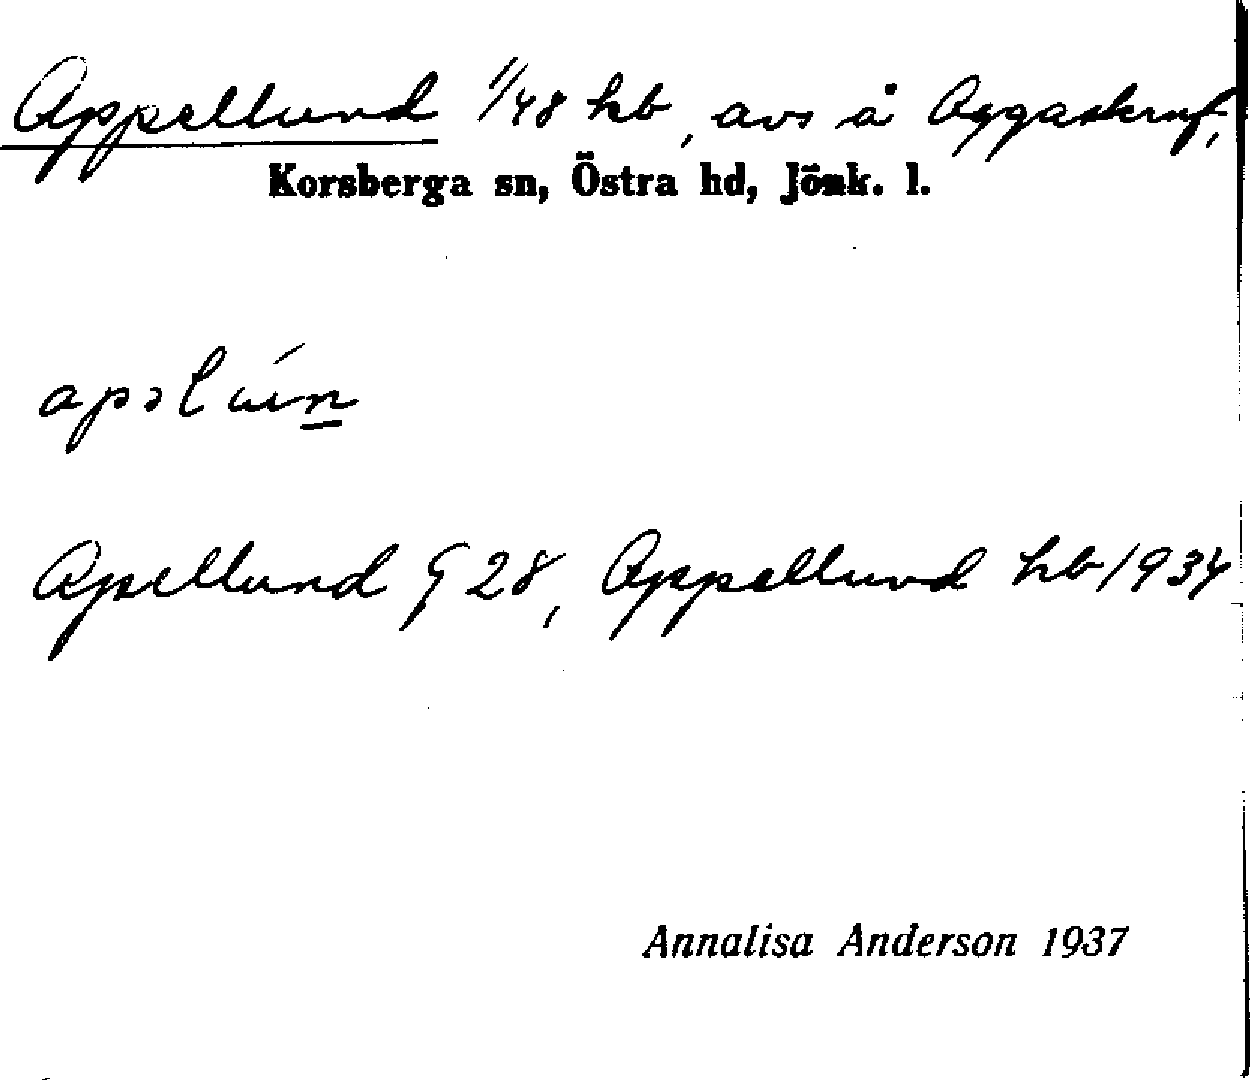 Appellund 1/48 hb, avs å Aggaskruf,
Korsberga sn, Östra hd, Jönk. l.
apəl
Apellund G 28, Appellund hb 1934
Annalisa Anderson 1937